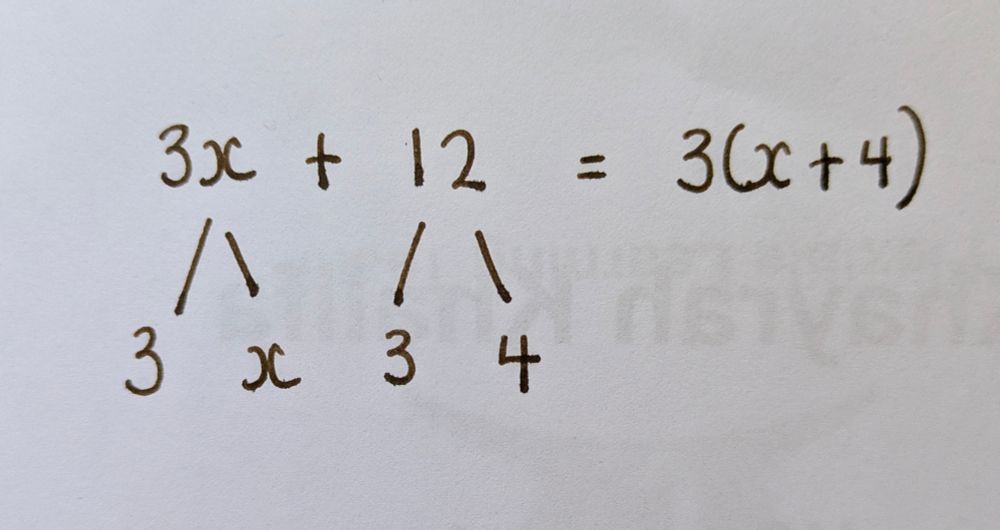 3x + 12 = 3(x+4)
3 x 3 4